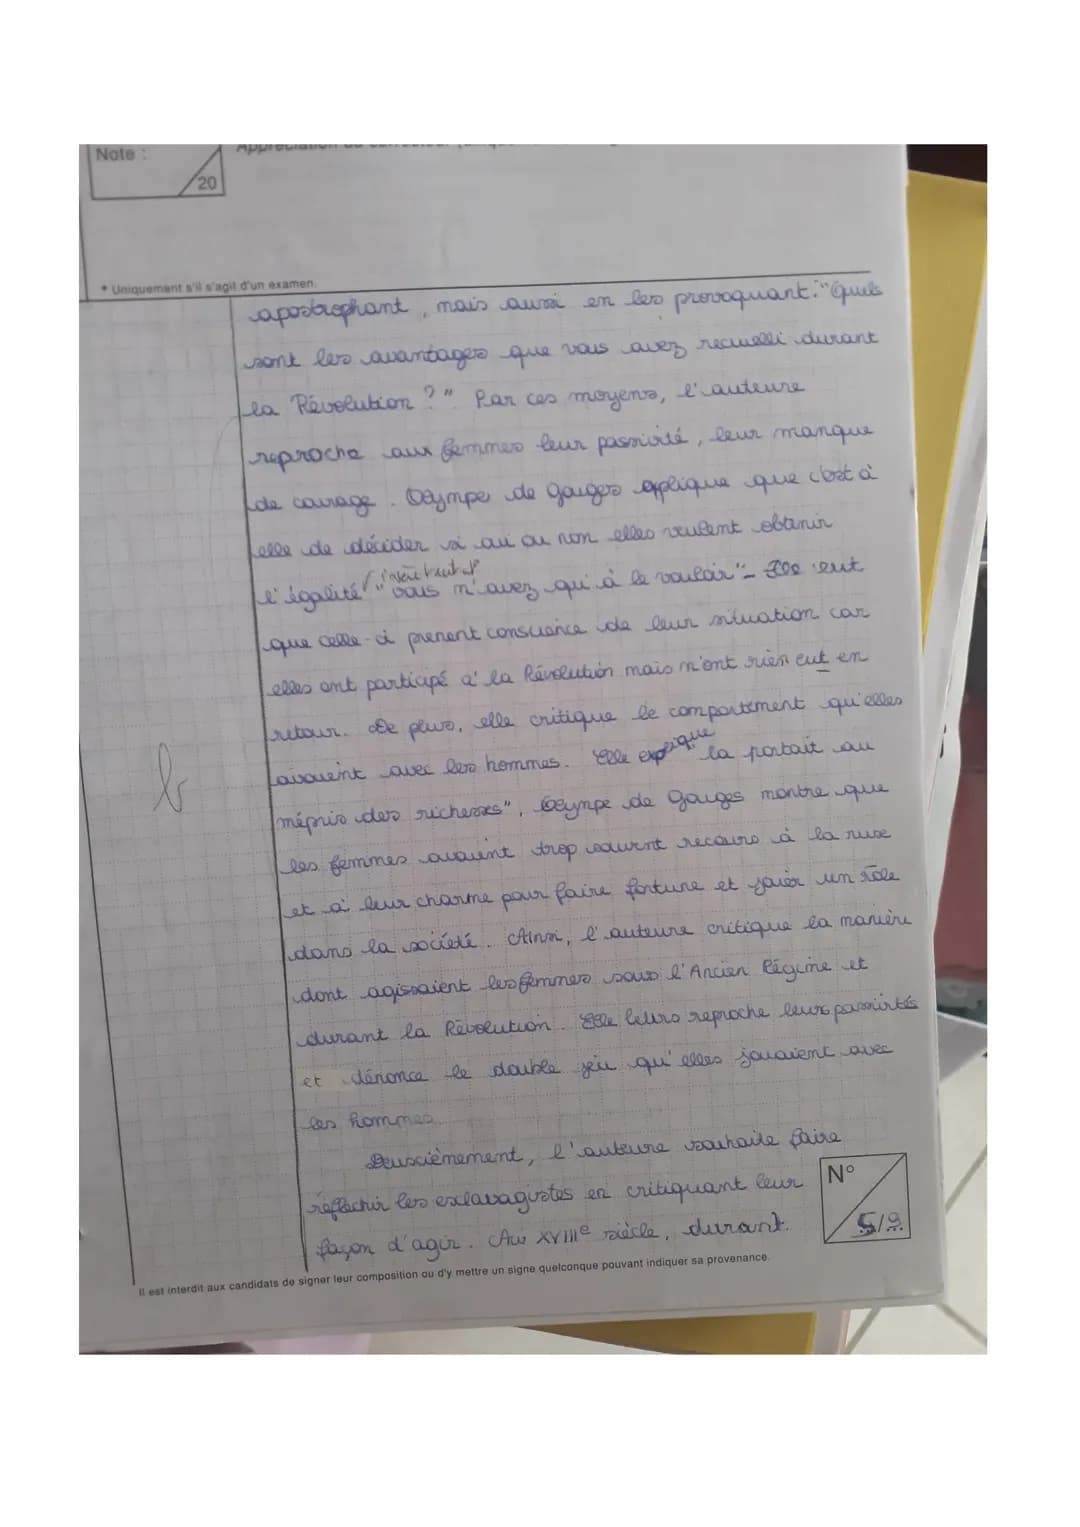 Note :
/20
* Uniquement s'il s'agit d'un examen.
apostrophant, mais aussi en les provoquant : "Quels
sont les avantages que vous avez recueilli durant
la Révolution ?". Par ces moyens, l'auteure
reproche aux femmes leur passivité, leur manque
de courage. Olympe de Gouges explique que c'est à
elle de décider si oui ou non elles veulent obtenir
l'égalité "vous n'avez qu'à le vouloir".
que celle-ci prenent consciance de leur situation car
elles ont participé à la Révolution mais n'ont rien eut en
retour. De plus, elle critique le comportement qu'elles
avaient avec les hommes. Elle explique "la portait au
mépris des richesses", Olympe de Gouges montre que
les femmes avaient trop souvent recours à la ruse
et à leur charme pour faire fortune et jouer un rôle
dans la société. Ainsi, l'auteure critique la manière
dont agissaient les femmes sous l'Ancien Régime et
durant la Révolution. Elle leurs reproche leurs passivités
et dénonce le double jeu qu'elles jouaient avec
les hommes.
Deuxièmement, l'auteure souhaite faire
réfléchir les esclavagistes en critiquant leur
façon d'agir. Au XVIIIe siècle, durant
N°
5/9
Il est interdit aux candidats de signer leur composition ou d'y mettre un signe quelconque pouvant indiquer sa provenance.